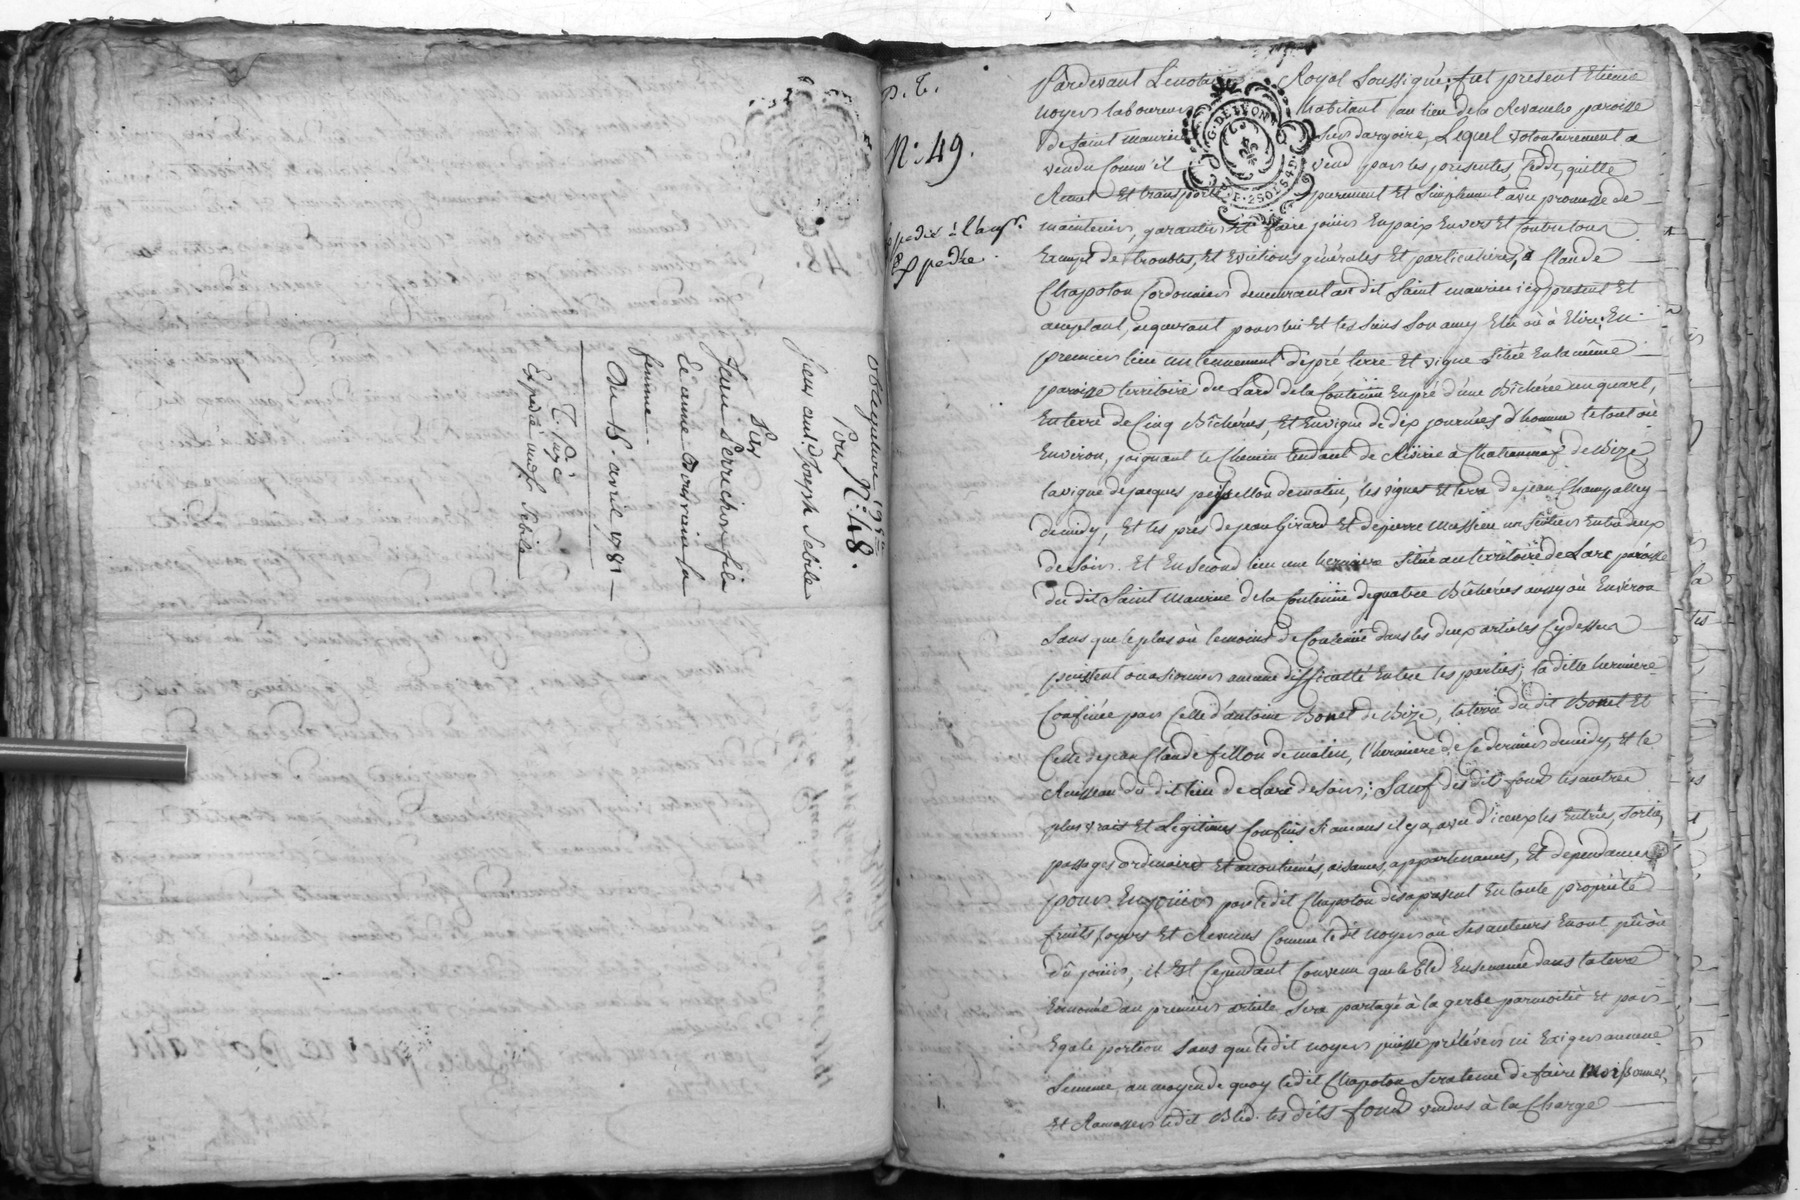 obligation 19
Pour N.° 48.
Sieur ant. Joseph Sebile
Par
Jean Perrichon fils
Et anne Bouvain sa
femme.
Du 15. avril 1781
T. Purs
Expedié au Sr. Sebile
P. T.
N.° 49.
Expedié à l'acqr.
Expedrée.
G. DE LYON
Pardevant Le notaire Royal Soussigné; fut present Etienne
noyer laboureur habitant au lieu de la Revanche paroisse
de Saint maurice sur dargoire, Lequel volontairement a
vendu Comm'il vend par les presentes, Cedde, quitte
Remet Et transporte purement Et simplement avec promesse de
maintenir, garantir Et faire joüir En paix Envers Et Contre tous
Exempt de troubles, Et Evictions générales Et particulieres, à Claude
Chapoton Cordonnier demeurant au dit Saint maurice icy present Et
acceptant, acquerant pour lui Et les siens Son amy Elû où à Elire; En
premier lieu un tennement de pré terre Et vigne Sitüé En la même
paroisse territoire du Lard de la Contenüe En pré d'une Bîcherée un quart,
En terre de Cinq Bîcherées, Et En vigne de dix journées d'homme le tout où
Environ, joignant le Chemin tendant de Rivirie à Chateauneuf de bize
la vigne de jacques pey fellon de matin, les vignes Et terre de jean Champalley
de midy, Et les prés de jean Girard Et de pierre Massieu un Sentier Entre deux
de Soir. Et En Second lieu une herniere Sitüée au territoire de Lare paroisse
du dit Saint Maurice de la Contenüe de quatre Bîcherées aussy où Environ
Sans que le plus où le moins de Contenüe dans les deux articles Cy dessus
puissent occasionner aucune difficulté Entre les parties; la ditte herniere
Confinée par Celle d'antoine Bonet de Bize, la terre du dit Bonet Et
Celle de jean Claude fillon de matin, l'herniere de Ce dernier de midy, Et le
Ruisseau du dit lieu de Lare de Soir; Sauf des dits fonds les autres
plus vrais Et Légitimes Confins Si aucuns il y a, avec d'iceux les Entrées, Sorties,
passages ordinaires Et accoutumés, aisances, appartenances, Et dependances
pour En joüir par le dit Chapoton dès à present En toute proprièté
fruits foyers Et Revenus Comme le dit noyer où Ses auteurs En ont pû où
dû joüir, il Est Cependant Convenu que le bled Ensemencé dans la terre
Enoncée au premier article Sera partagé à la gerbe par moitié Et par
Egale portion Sans que le dit noyer puisse prélever ni Exiger aucune
Semence, au moyen de quoy le dit Chapoton Sera tenu de faire moissonner,
Et Ramasser le dit Bled. les dits fonds vendus à la Charge